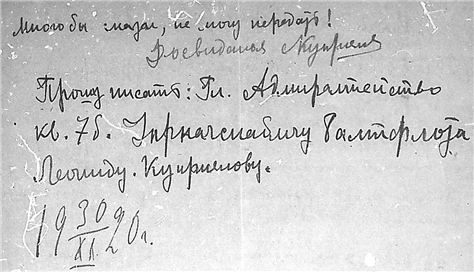 Много бы сказал, не могу передать!
Досвидания Куприян
Прошу писать: Гл. Адмиралтейство
кв. 7б. Балтфлота
Леониду. Куприянову.
19 30/XI 20 г.